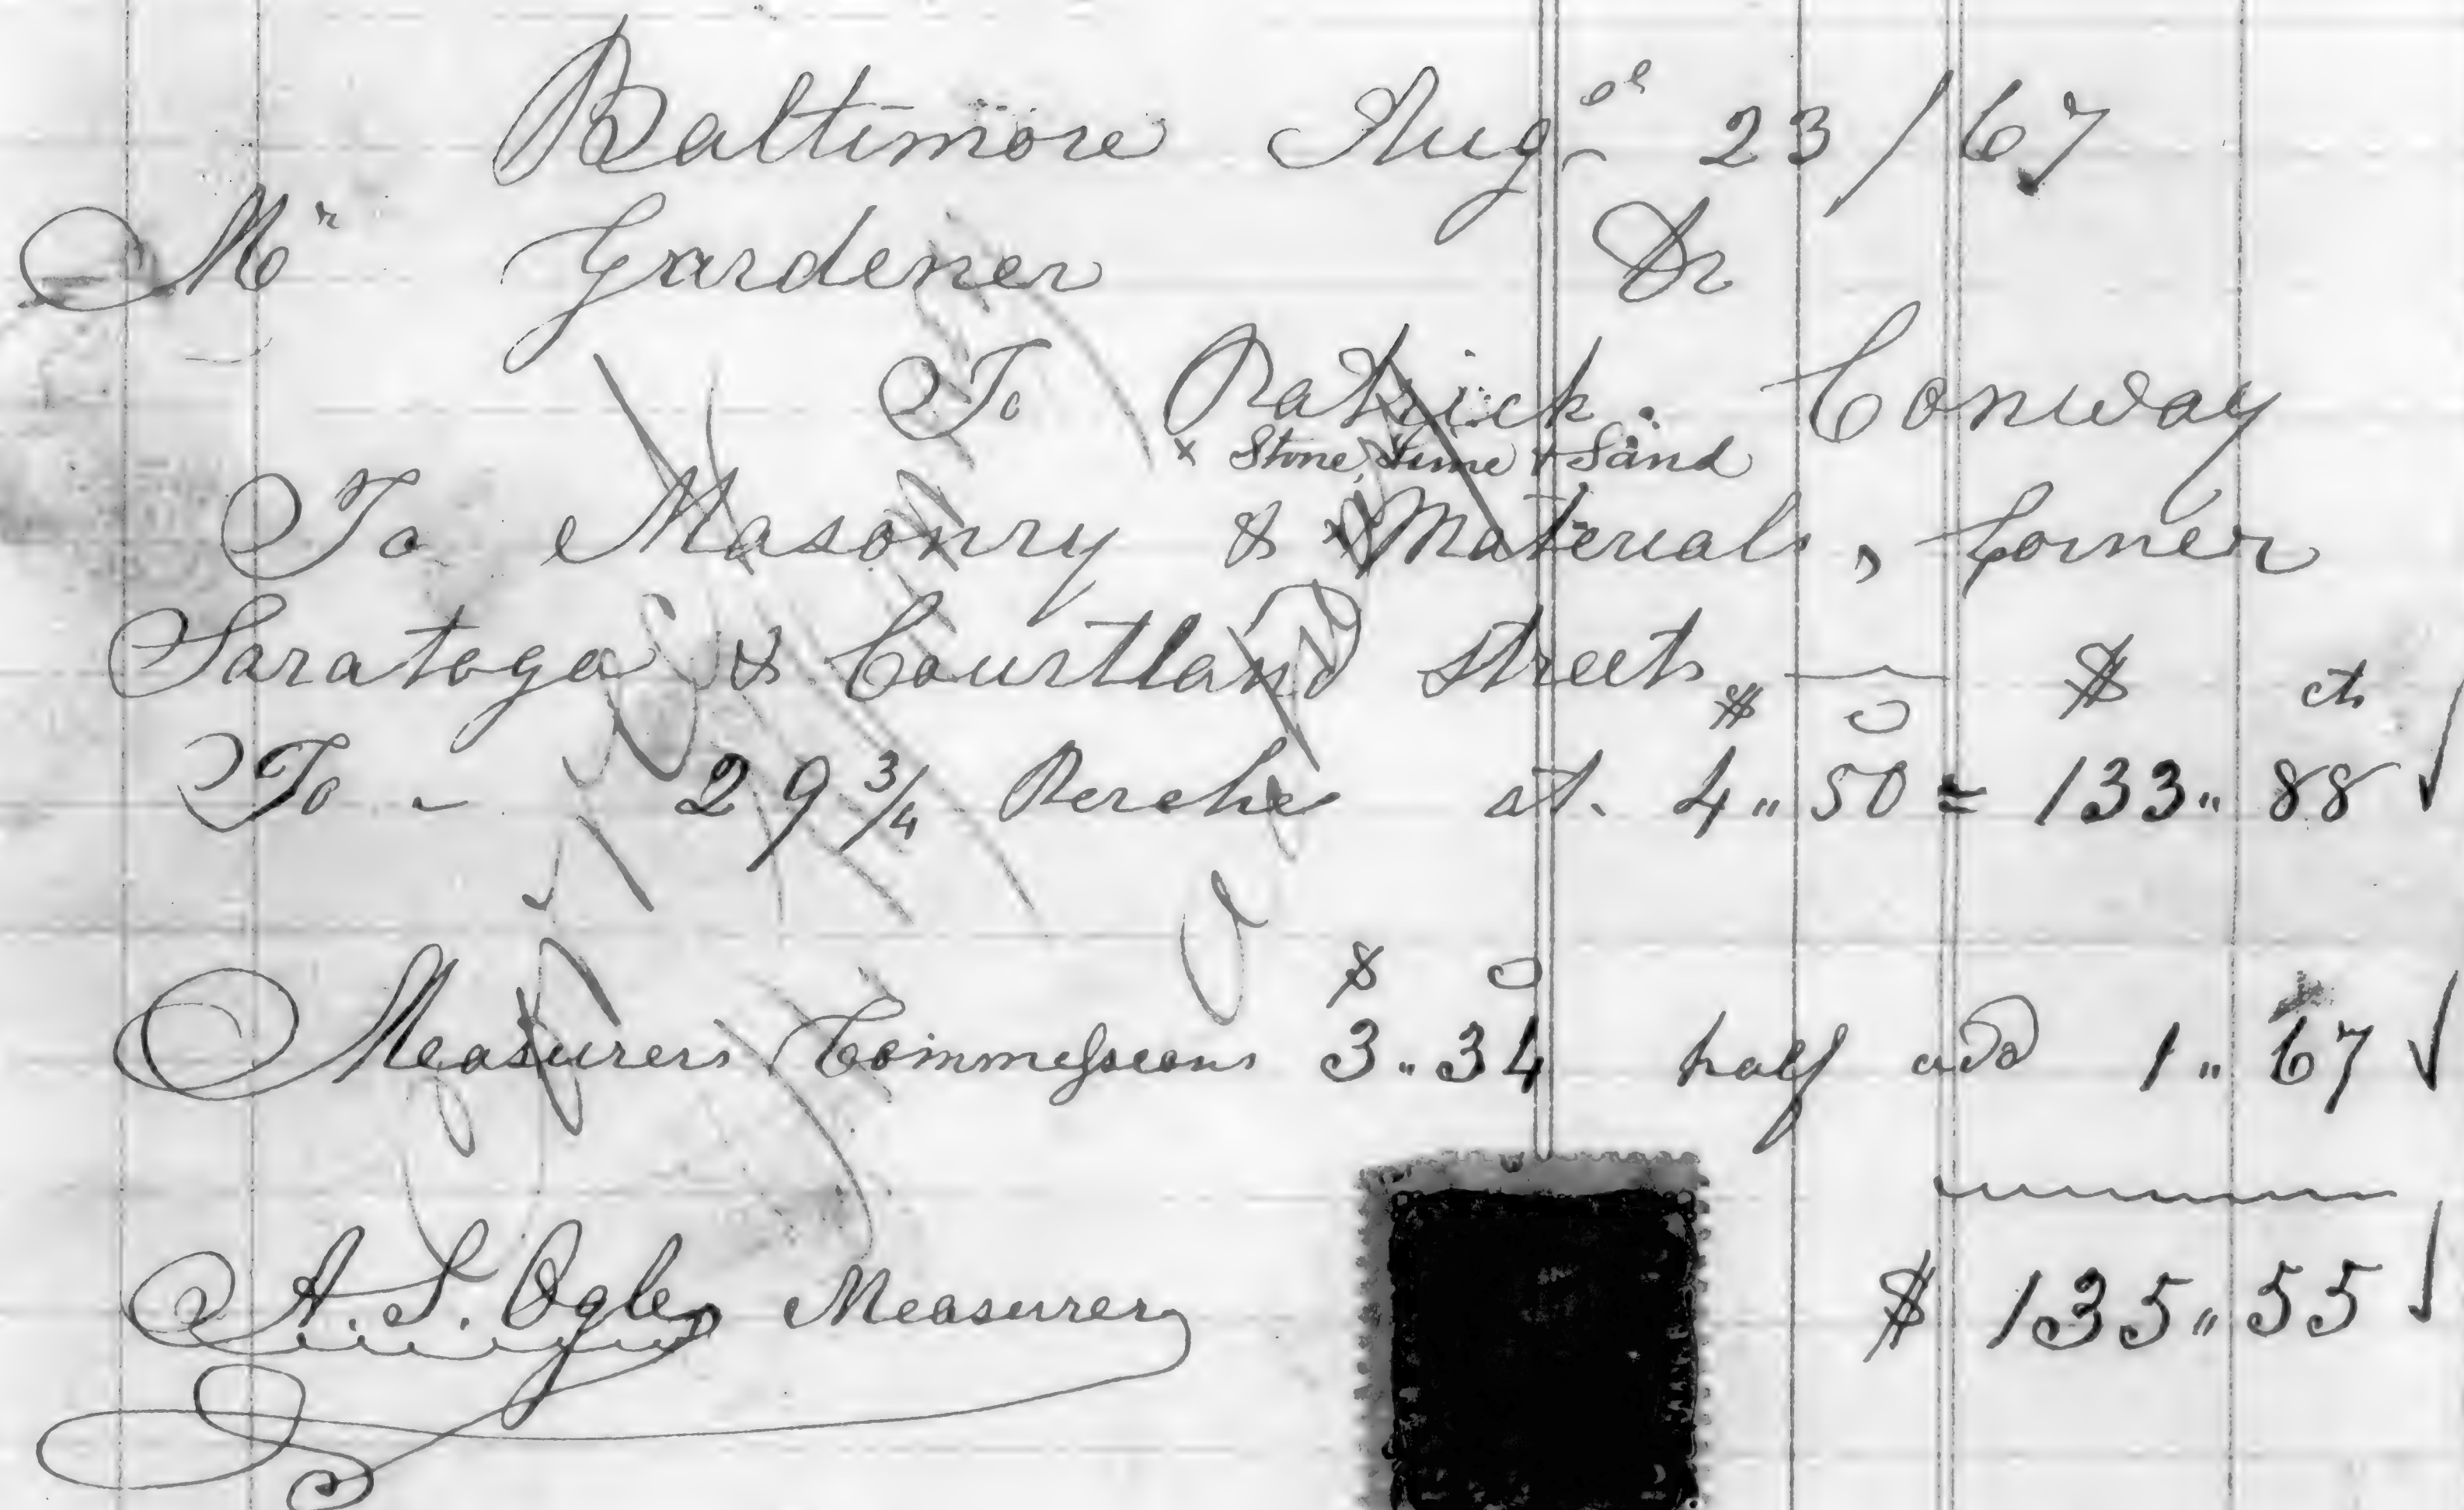 Baltimore Aug st 23/67
Mr Gardener Dr
To Patrick Conway
x Stone, Lime & Sand
To Masonry & Materials, Corner
Saratoga & Courtland Streets
$ c $ cts
To - 29 3/4 Perches at. 4 " 50 = 133 " 88 ✓
$ c
Measurers Commissions 3 " 34 half add 1 " 67 ✓
$ 135 " 55 ✓
A. S. Ogle, Measurer